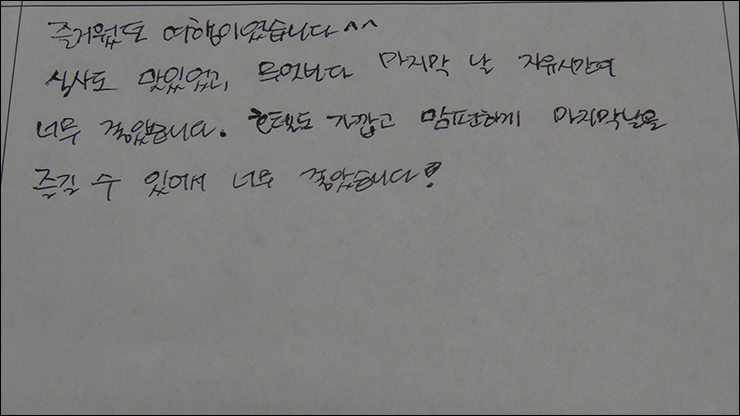 즐거웠도 여행이였습니다^^
식사도 맛있었고, 무엇보다 마지막 날 자유시간이
너무 좋았습니다. 호텔도 가깝고 맘편하게 마지막날을
즐길 수 있어서 너무 좋았습니다!